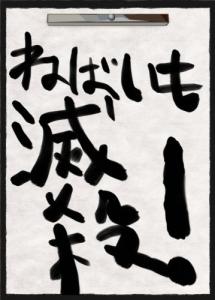 ねばいも
滅殺！